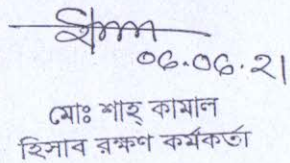 ০৬.০৬.২১
মোঃ শাহ্ কামাল
হিসাব রক্ষণ কর্মকর্তা